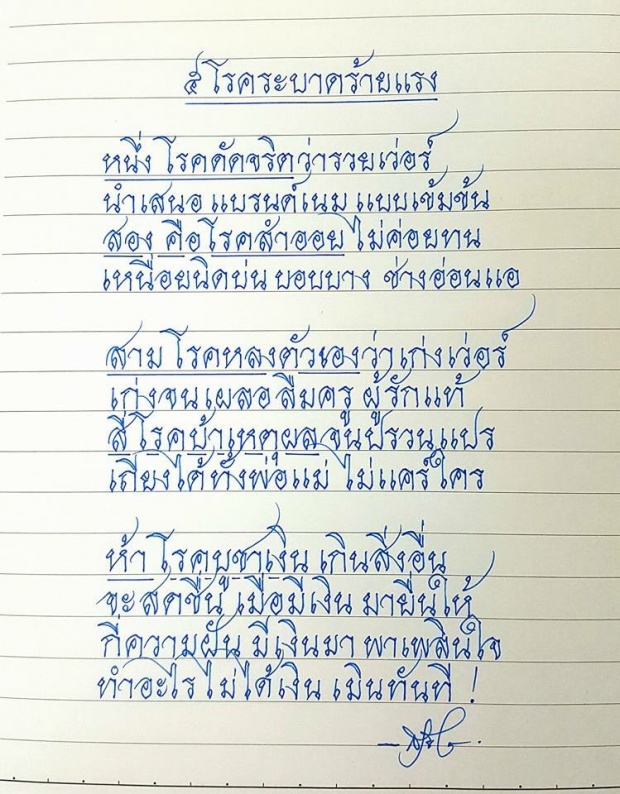 ๕ โรคระบาดร้ายแรง
หนึ่ง โรคดัดจริตว่ารวยเว่อร์
นำเสนอ แบรนด์เนม แบบเข้มข้น
สอง คือโรคสำออย ไม่ค่อยทน
เหนื่อยนิดบ่น บอบบาง ช่างอ่อนแอ
สาม โรคหลงตัวเองว่าเก่งเว่อร์
เก่งจนเผลอ ลืมครู ผู้รักแท้
สี่ โรคบ้าเหตุผลจนปรวนแปร
เถียงได้ทั้งพ่อแม่ ไม่แคร์ใคร
ห้า โรคบูชาเงิน เกินสิ่งอื่น
จะสดชื่น เมื่อมีเงิน มายื่นให้
กี่ความฝัน มีเงินมา พาเพลินใจ
ทำอะไร ไม่ได้เงิน เมินทันที !